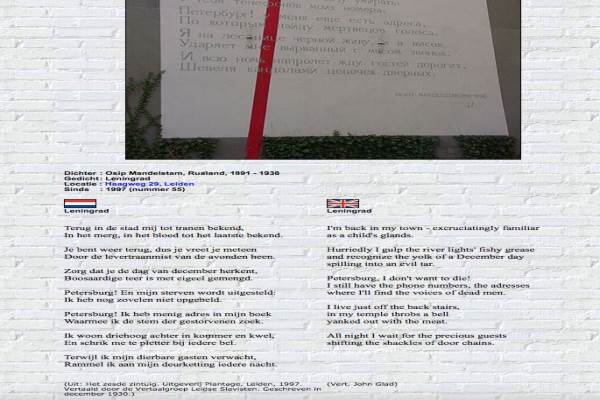 у тебя телефонов моих номера.
Петербург! у меня еще есть адреса,
По которым найду мертвецов голоса.
Я на лестнице черной живу, и в висок
Ударяет мне вырванный с мясом звонок.
И всю ночь напролет жду гостей дорогих,
Шевеля кандалами цепочек дверных.
Dichter : Osip Mandelstam, Rusland, 1891 - 1938
Gedicht : Leningrad
Locatie : Haagweg 29, Leiden
Sinds : 1997 (nummer 55)
Leningrad
Terug in de stad mij tot tranen bekend,
In het merg, in het bloed tot het laatste bekend.
Je bent weer terug, dus je vreet je meteen
Door de levertraanmist van de avonden heen.
Zorg dat je de dag van december herkent,
Boosaardige teer is met eigeel gemengd.
Petersburg! En mijn sterven wordt uitgesteld:
Ik heb nog zovelen niet opgebeld.
Petersburg! Ik heb menig adres in mijn boek
Waarmee ik de stem der gestorvenen zoek.
Ik woon driehoog achter in kommer en kwel,
En schrik me te pletter bij iedere bel.
Terwijl ik mijn dierbare gasten verwacht,
Rammel ik aan mijn deurketting iedere nacht.
(Uit: Het zesde zintuig. Uitgeverij Plantage, Leiden, 1997.
Vertaald door de Vertaalgroep Leidse Slavisten. Geschreven in
december 1930.)
Leningrad
I'm back in my town - excruciatingly familiar
as a child's glands.
Hurriedly I gulp the river lights' fishy grease
and recognize the yolk of a December day
spilling into an evil tar.
Petersburg, I don't want to die!
I still have the phone numbers, the adresses
where I'll find the voices of dead men.
I live just off the back stairs,
in my temple throbs a bell
yanked out with the meat.
All night I wait for the precious guests
shifting the shackles of door chains.
(Vert. John Glad)